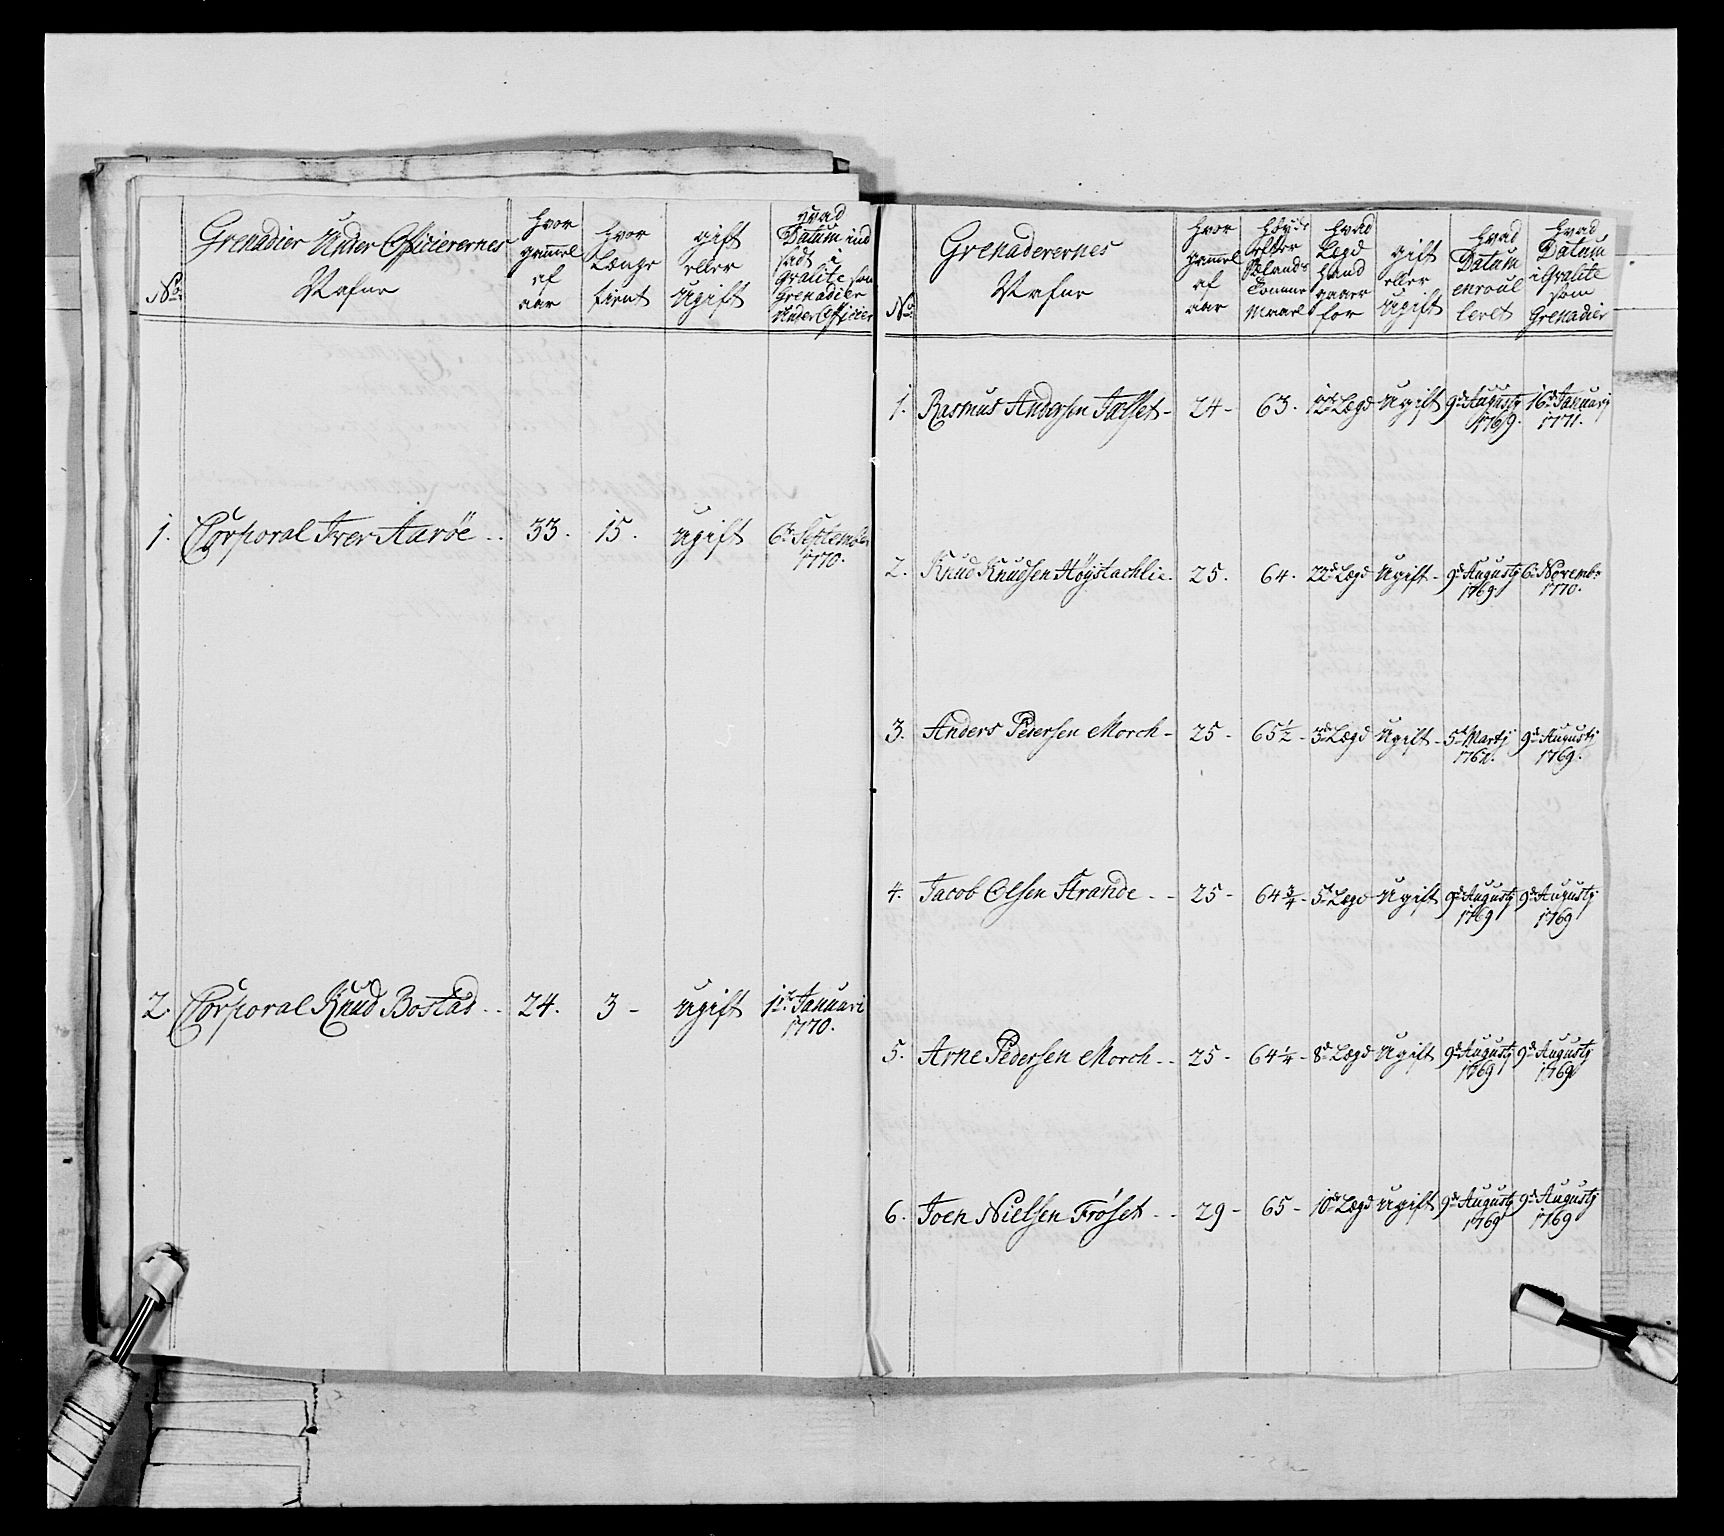 No:
Grenadier Under Officierernes
Nafne
hvor
gammel
af
aar
hvor
Længe
tient
gift
eller
ugift
hvad
Datum ind
sadt i
Qvalite som
Grenadier
Under Officier
1. Corporal Iver Aarøe . . 33. 15. ugift 6te September
1770.
2. Corporal Knud Bostad . . 24. 3 - ugift 1te Januari
1770.
No:
Grenaderernes
Nafne
hvor
gammel
af
aar
Høyde
efter
Sælands
Tomme
Maael
hvad
Lægd
hand
staaer
for
gift
eller
ugift
hvad
Datum
enroul
leret
hvad
Datum
i Qvalite
som
Grenadier
1. Rasmus Andersen - 24 - 63. 12te Lægd Ugift 9de Augusty 16de Januarj
1769. 1771.
2. Knud Knudsen Høystachlie. 25. 64. 22de Lægd Ugift - 9de Augustj 6te Novembr
1769. 1770.
3. Anders Pedersen Morch - 25 - 65½ - 3de Lægd Ugift - 5te Martj 9de Augustj
1769.
4. Jacob Olsen Strande . - 25 - 64¾ - 5te Lægd Ugift 9de Augustj 9de Augustj
1769 1769
5. Arne Pedersen Morch . . 25 - 64¼ - 8de Lægd Ugift 9de Augustj 9de Augustj
1769 1769
6. Joen Nielsen Frøset . . 29 - 65 - 10de Lægd ugift 9de Augustj 9de Augustj
1769 1769